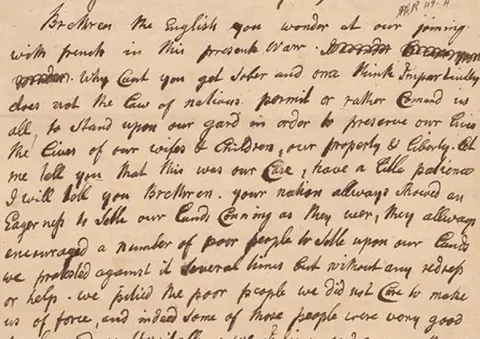 HR 49-4
Brethren the English you wonder at our joining
with french in this present Warr.
Why Cant you get Sober and once think Impartially
does not the Law of nations permit or rather Comand us
all, to Stand upon our gard in order to preserve our lives
the lives of our wifes & Children, our property & liberty. let
me tell you that this was our Case, have a litle patience
I will tell you Brethren. your nation allways Showed an
Eagerness to Setle our Lands Cunning as they wer, they allways
encouraged a number of poor people to Setle upon our Lands
we protested against it Several times but without any redress
or help. we pitied the poor people we did not Care to make
us of force, and indeed Some of those people were very good